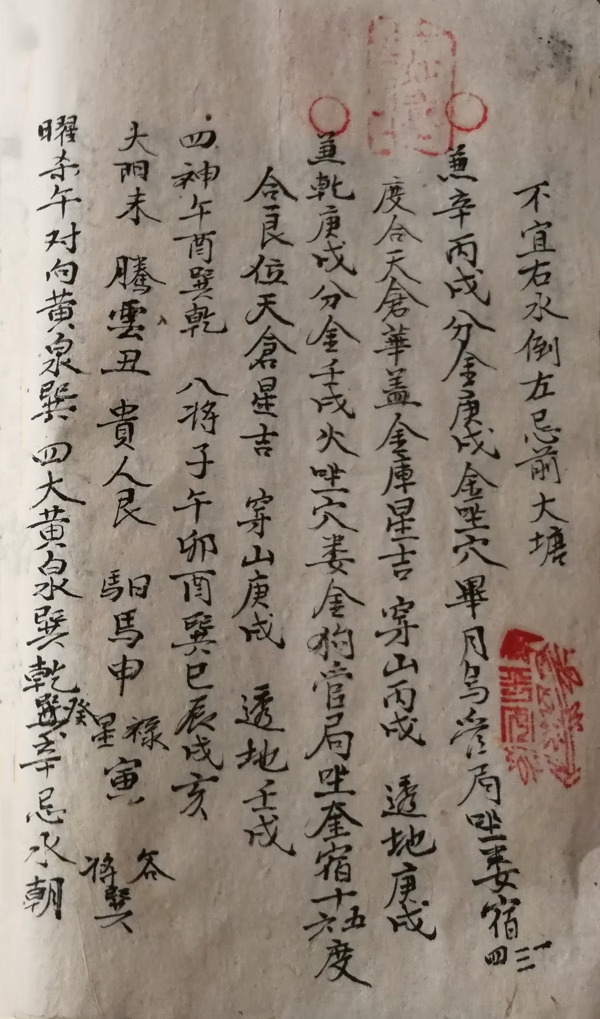 不宜右水倒左忌前大塘
兼辛丙戌分金庚戌金坐穴畢月烏管局坐婁宿一二三四
度合天倉華盖金庫星吉 穿山丙戌 透地庚戌
兼乾庚戌分金壬戌火坐穴娄金狗管局坐奎宿十五六度
合艮位天倉星吉 穿山庚戌 透地壬戌
四神午酉巽乾 八将子午卯酉巽巳辰戌亥
太阳未 騰雲丑 貴人艮 馹馬申 禄星寅 谷将巽
曜杀午对向黄泉巽四大黄泉巽乾癸辛忌水朝